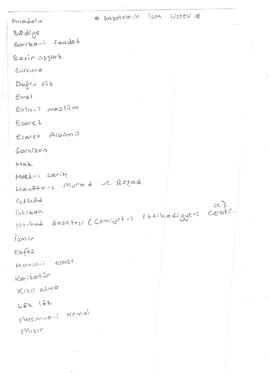 * Gazetelerin İsim Listesi *
Anadolu
Bedîge
Barika-i Saadet
Basiretşark
Curcuna
Doğru söz
Emel
Enin-i mazlûm
Esaret
Esaret Albümü
Garnizon
Hak
Hakk-ı sarih
Havâtır-ı Murad ve Reşad
İctihâd
İntibah
İstihad Gazetesi (Cemiyet-i İttihadiyye-i
İzmir
Kafes
Kanun-i esasi
Karikatür
Kızıl elma
Lâk lâk
Mecmua-i Kemal
Mısır